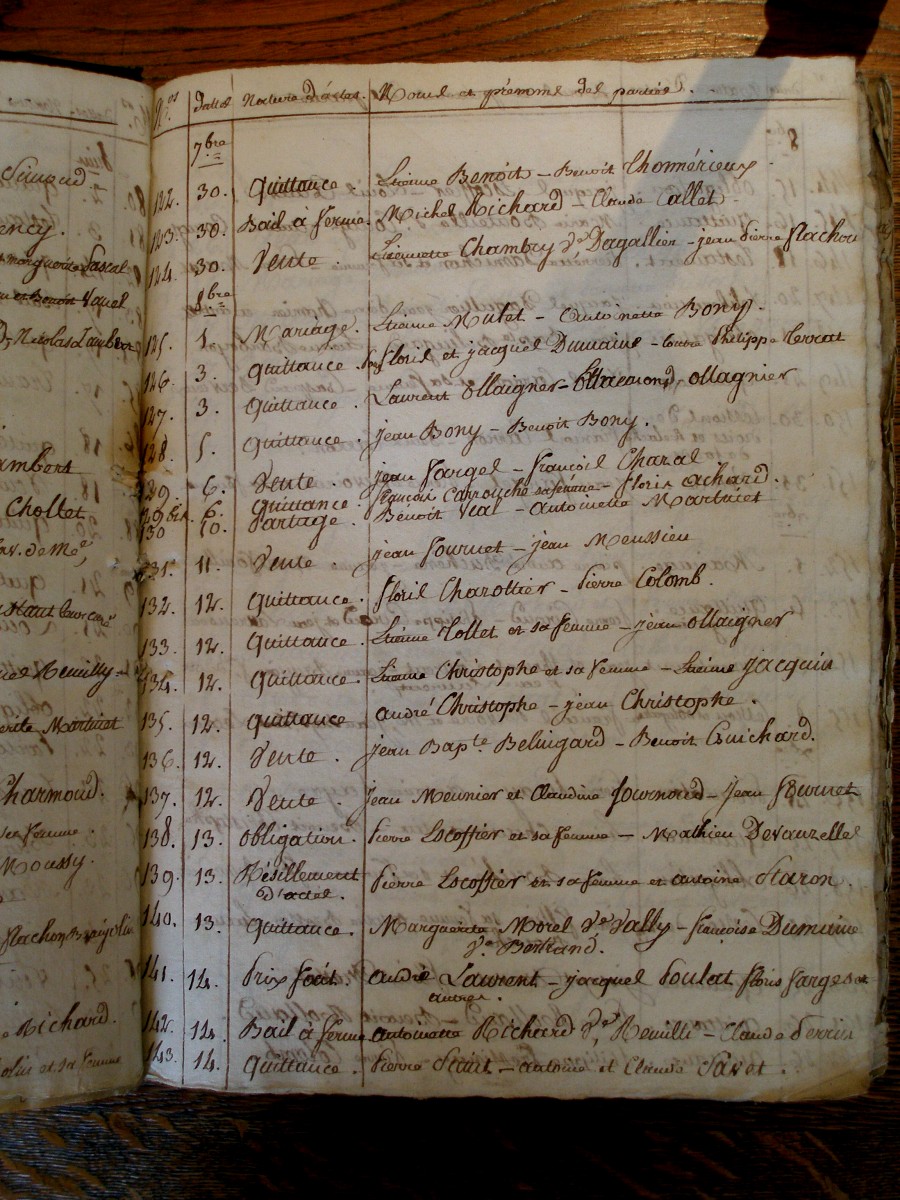 Simond
ency.
et marguerite Pascal
et Benoit Vauel
D, Nicolas Lambert
ambert
Chollet
av. de Me
Reuilly
erite Martinet
Charmond.
sa femme.
Moussy.
Flachon Beaujolin
e Richard.
et sa femme
N.os dattes Nature d'actes. Noms et prénoms des parties.
7bre
122. 30. Quittance. Etienne Benoit - Benoit Thomérieux.
123. 30. Bail a ferme. Michel Richard - Claude Collet.
124. 30. Vente. Etiennette Chambry Ve Dagallier - jean Pierre Flachon
8bre
125. 1. Mariage. Etienne Mulet - Antoinette Bony.
126. 3. Quittance. Floris et jacques Dumaine - Contre Philippe Tercat
127. 3. Quittance. Laurent ollaigner - ollagnier
128. 5. Quittance. jean Bony - Benoit Bony.
129. 6. Vente. jean Fargel - françois Chazal
129 bis. 6. Quittance. françois Carrouche sa femme - floris achard.
130 10. Partage. Bénoit Vial - Antoinette Martinet
131. 11. Vente. jean fournet - jean Meussieu
132. 12. Quittance. floris Charottier - Pierre Colomb.
133. 12. Quittance. Etienne Tollet et sa femme - jean ollaigner
134. 12. Quittance. Etienne Christophe et sa femme - Etienne jacquin
135. 12. Quittance andré Christophe - jean Christophe.
136. 12. Vente. jean Bapte Belingard - Benoit Guichard.
137. 12. Vente. jean Meunier et Claudine fournond - jean fournet
138. 13. obligation. Pierre Escoffier et sa femme - Mathieu Devauzelles
139. 13. Résillement Pierre Escoffier et sa femme et antoine Staron.
d'actes.
140. 13. Quittance. Marguerite Morel Ve Vally - françoise Dumaine
Ve Bertrand.
141. 14. Prix fait. andré Laurent - jacques Poulat floris farges et
autres.
142. 14. Bail à ferme antoinette Richard Ve Reuilli - Claude Perrin
143. 14. Quittance. Pierre - antoine et Claude Savet.
8